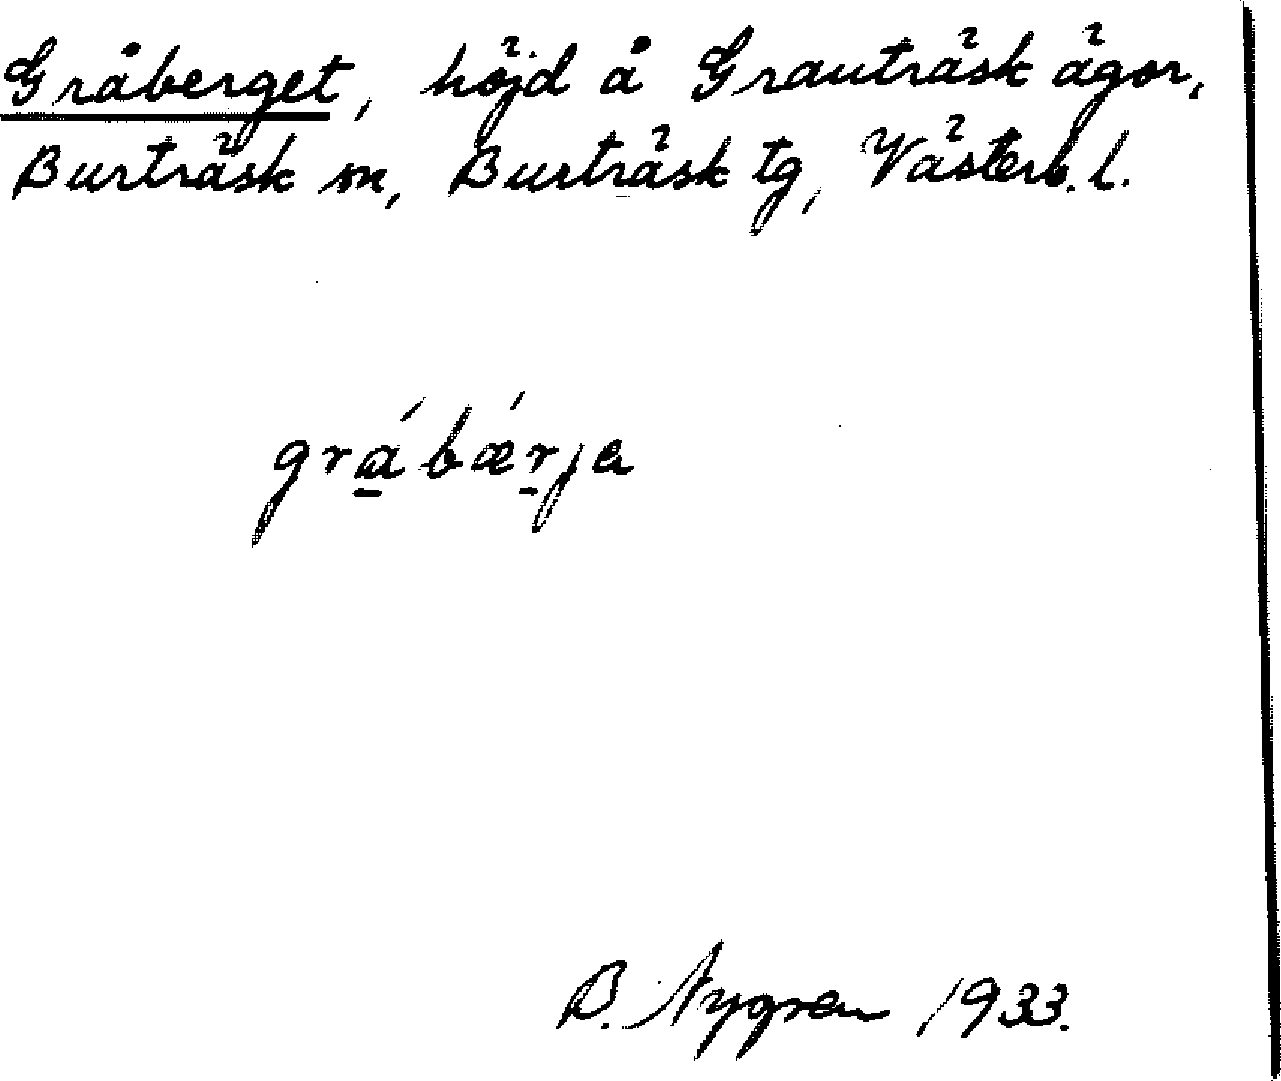 Gråberget, höjd å Grauträsk ägor,
Burträsk sn, Burträsk tg, Västerb. l.
gra̱´bæ´ṟja
B. Nygren 1933.